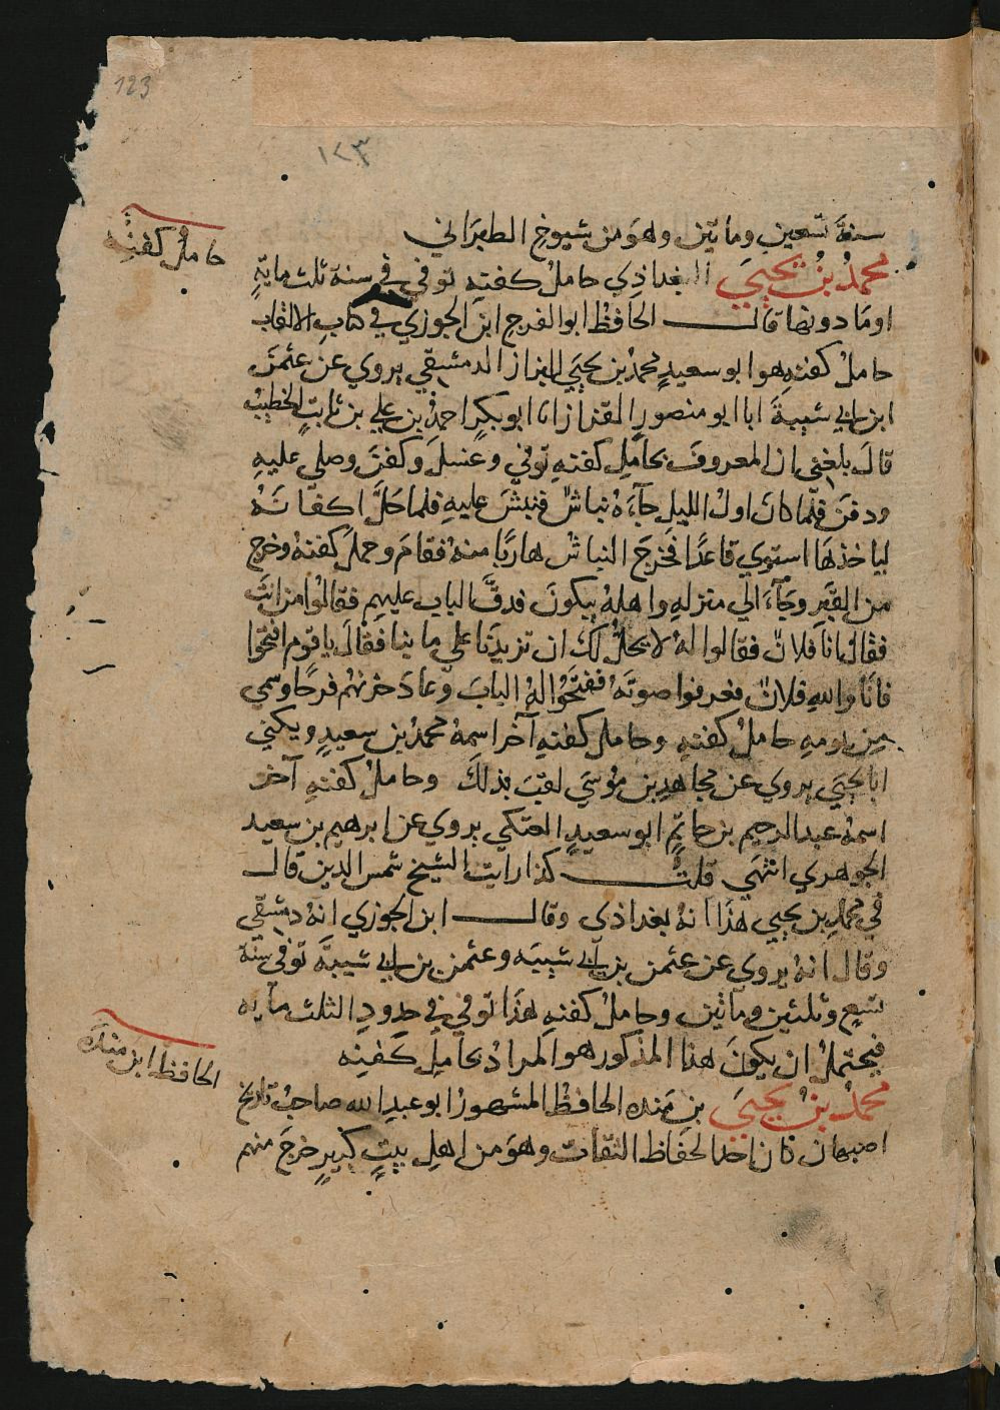 123
١٢٣
سنة تسعين ومأتين وهو من شيوخ الطبراني
حامل كفنه
محمد بن يحيى البغداذي حامل كفنه توفي في سنة ثلث مائة
او ما دونها قال الحافظ ابو الفرج ابن الجوزي في كتاب الالقاب
حامل كفنه هو ابو سعيد محمد بن يحيى البزاز الدمشقي يروي عن عثمن
ابن ابي شيبة ابا ابو منصور القزاز انا ابو بكر احمد بن علي بن ثابت الخطيب
قال بلغني ان المعروف بحامل كفنه توفي وغسل وكفن وصلي عليه
ودفن فلما كان اول الليل جآءه نباش فنبش عليه فلما حل اكفانه
لياخذها استوي قاعدا فخرج النباش هاربا منه فقام وحمل كفنه وخرج
من القبر وجآء الي منزله واهله يبكون فدق الباب عليهم فقالوا من انت
فقال انا فلان فقالوا له لا يحل لك ان تزيدنا علي ما بنا فقال يا قوم افتحوا
فانا والله فلان فعرفوا صوته ففتحوا له الباب وعاد حزنهم فرحا وسمي
من يومه حامل كفنه وحامل كفنه آخر اسمه محمد بن سعيد ويكني
ابا يحيي يروي عن مجاهد بن موسي لقب بذلك وحامل كفنه آخر
اسمه عبد الرحيم بن حاتم ابو سعيد العتكي يروي عن ابرهيم بن سعيد
الجوهري انتهي قلت كذا رايت الشيخ شمس الدين قال
في محمد بن يحيي هذا انه بغداذي وقال ابن الجوزي انه دمشقي
وقال انه يروي عن عثمن بن ابي شيبه وعثمن بن ابي شيبة توفي سنة
تسع وثلثين ومآتين وحامل كفنه هذا توفي في حدود الثلث مآيه
فيحتمل ان يكون هذا المذكور هو المراد بحامل كفنه
الحافظ ابن منده
محمد بن يحيى بن منده الحافظ المشهور ابو عبد الله صاحب تاريخ
اصبهان كان احد الحفاظ الثقات وهو من اهل بيت كبير خرج منهم